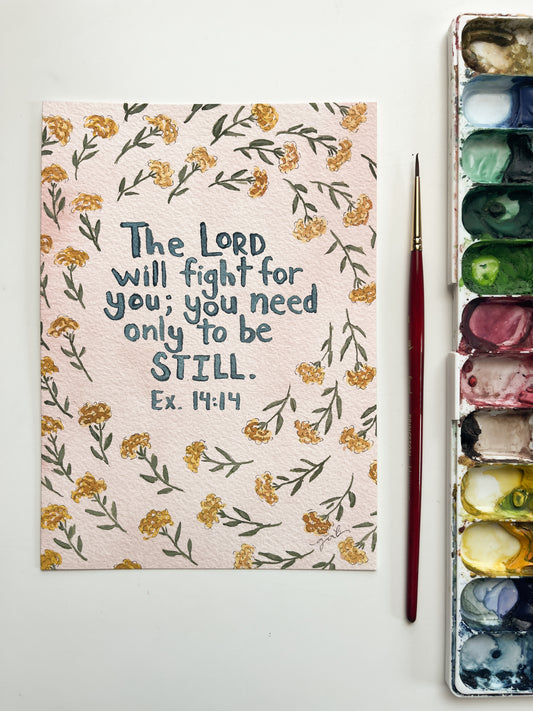 The LORD
will fight for
you; you need
only to be
STILL.
Ex. 14:14